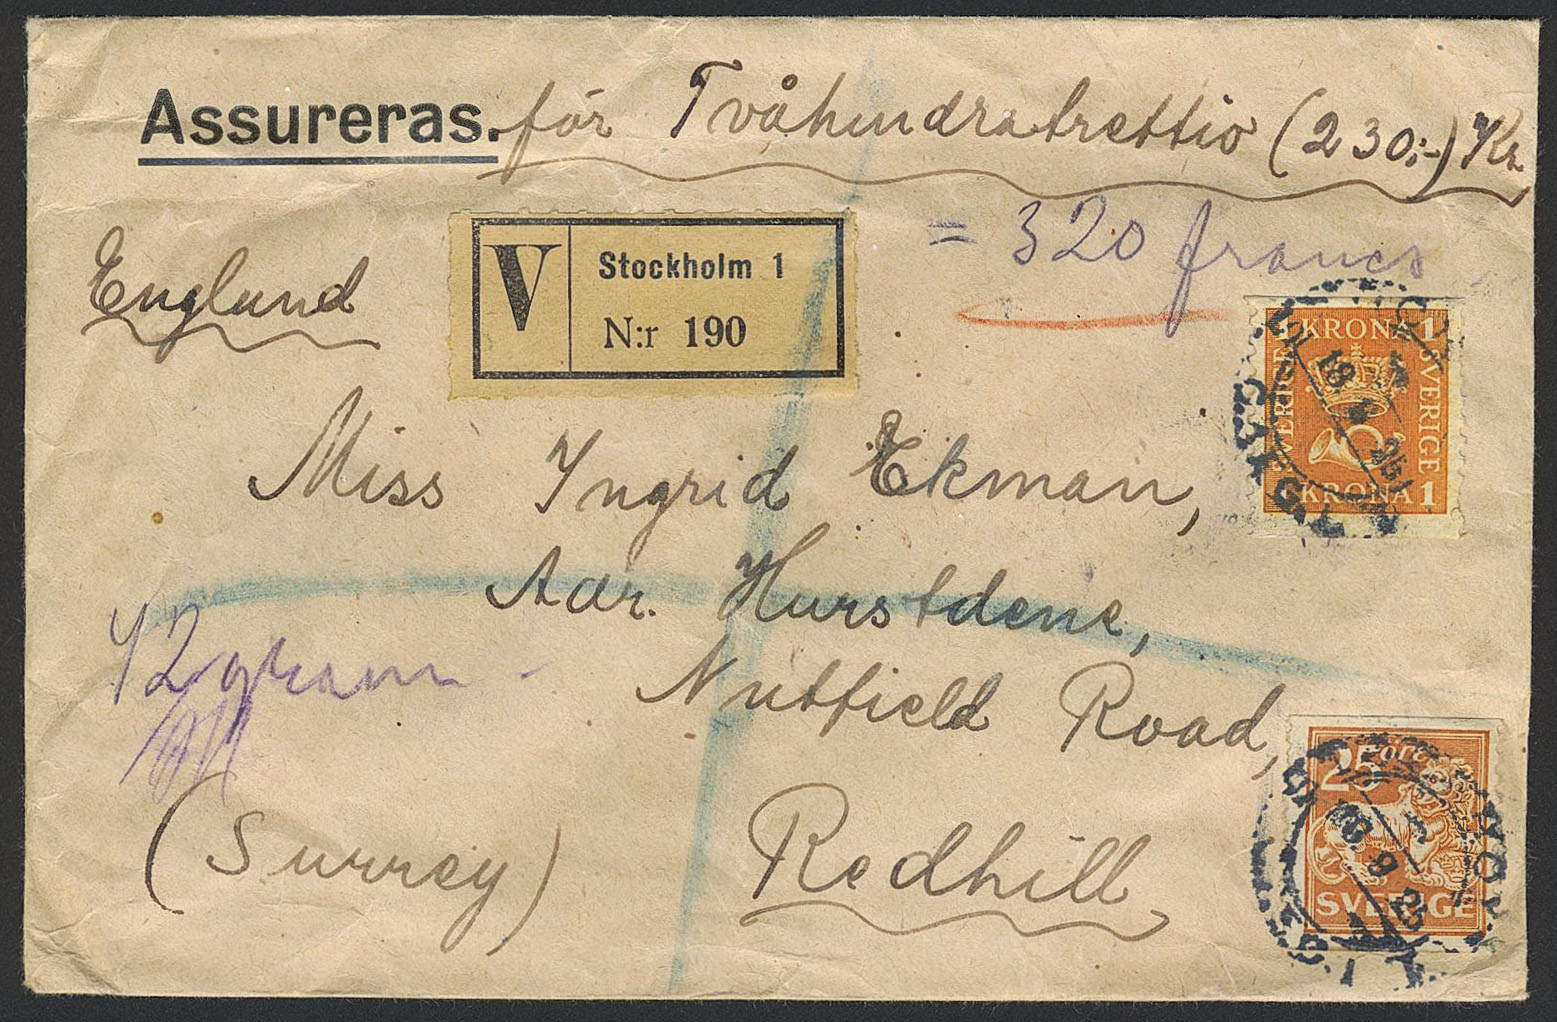 Assureras. för Tvåhundratrettio (230:-) Kr
= 320 francs
England
V
Stockholm 1
N:r 190
1 KRONA 1
SVERIGE
SVERIGE
1 KRONA 1
Miss Ingrid Ekman,
Adr. Hurstdene,
12 gram
Nutfield Road,
(Surrey)
Redhill
25 ÖRE
SVERIGE